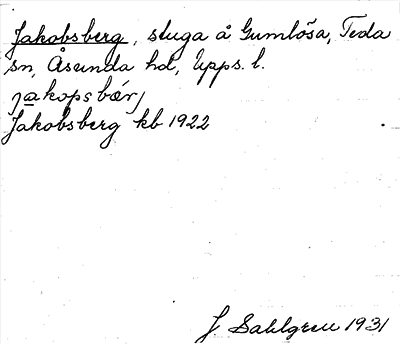 Jakobsberg, stuga å Gumlösa, Teda
sn, Åsunda hd, Upps. l.
jakopsbærj
Jakobsberg kb 1922
J. Sahlgren 1931